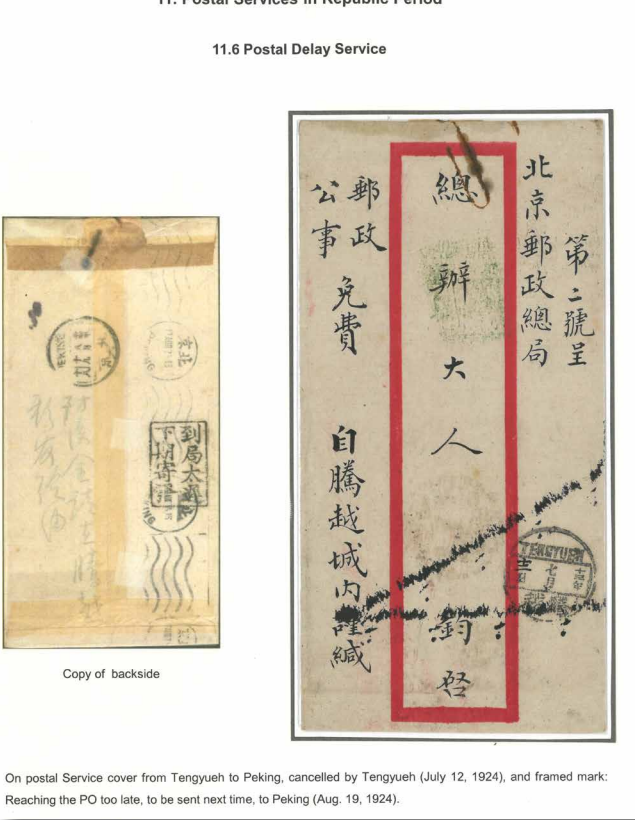 11. Postal Services in Republic Period
11.6 Postal Delay Service
第二號呈
北京郵政總局
總辦大人鈞啓
郵政
公事
免費
自騰越城內謹緘
TENGYUEH
七月
北京
到局太遲
下期寄發
Copy of backside
On postal Service cover from Tengyueh to Peking, cancelled by Tengyueh (July 12, 1924), and framed mark:
Reaching the PO too late, to be sent next time, to Peking (Aug. 19, 1924).